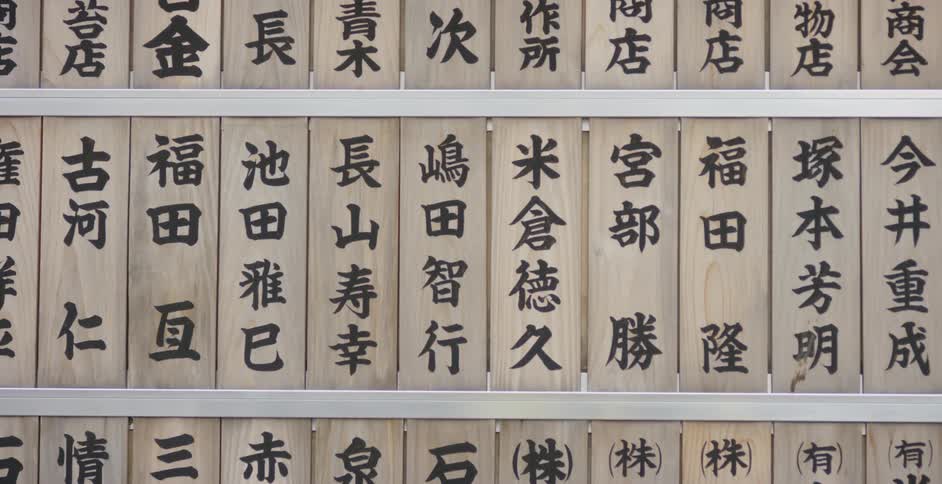 商会
物店
商店
商店
作所
次
青木
長
金
苔店
店
今井重成
塚本芳明
福田 隆
宮部 勝
米倉徳久
嶋田智行
長山寿幸
池田雅巳
福田 亘
古河 仁
(有)
(有)
(株)
(株)
(株)
石
泉
赤
三
情
石